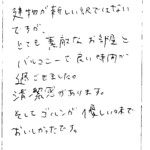 建物が新しい訳ではない
ですが
とても素敵なお部屋と
バルコニーで良い時間が
過ごせました。
清潔感があります。
そしてゴハンが優しい味で
おいしかったです。